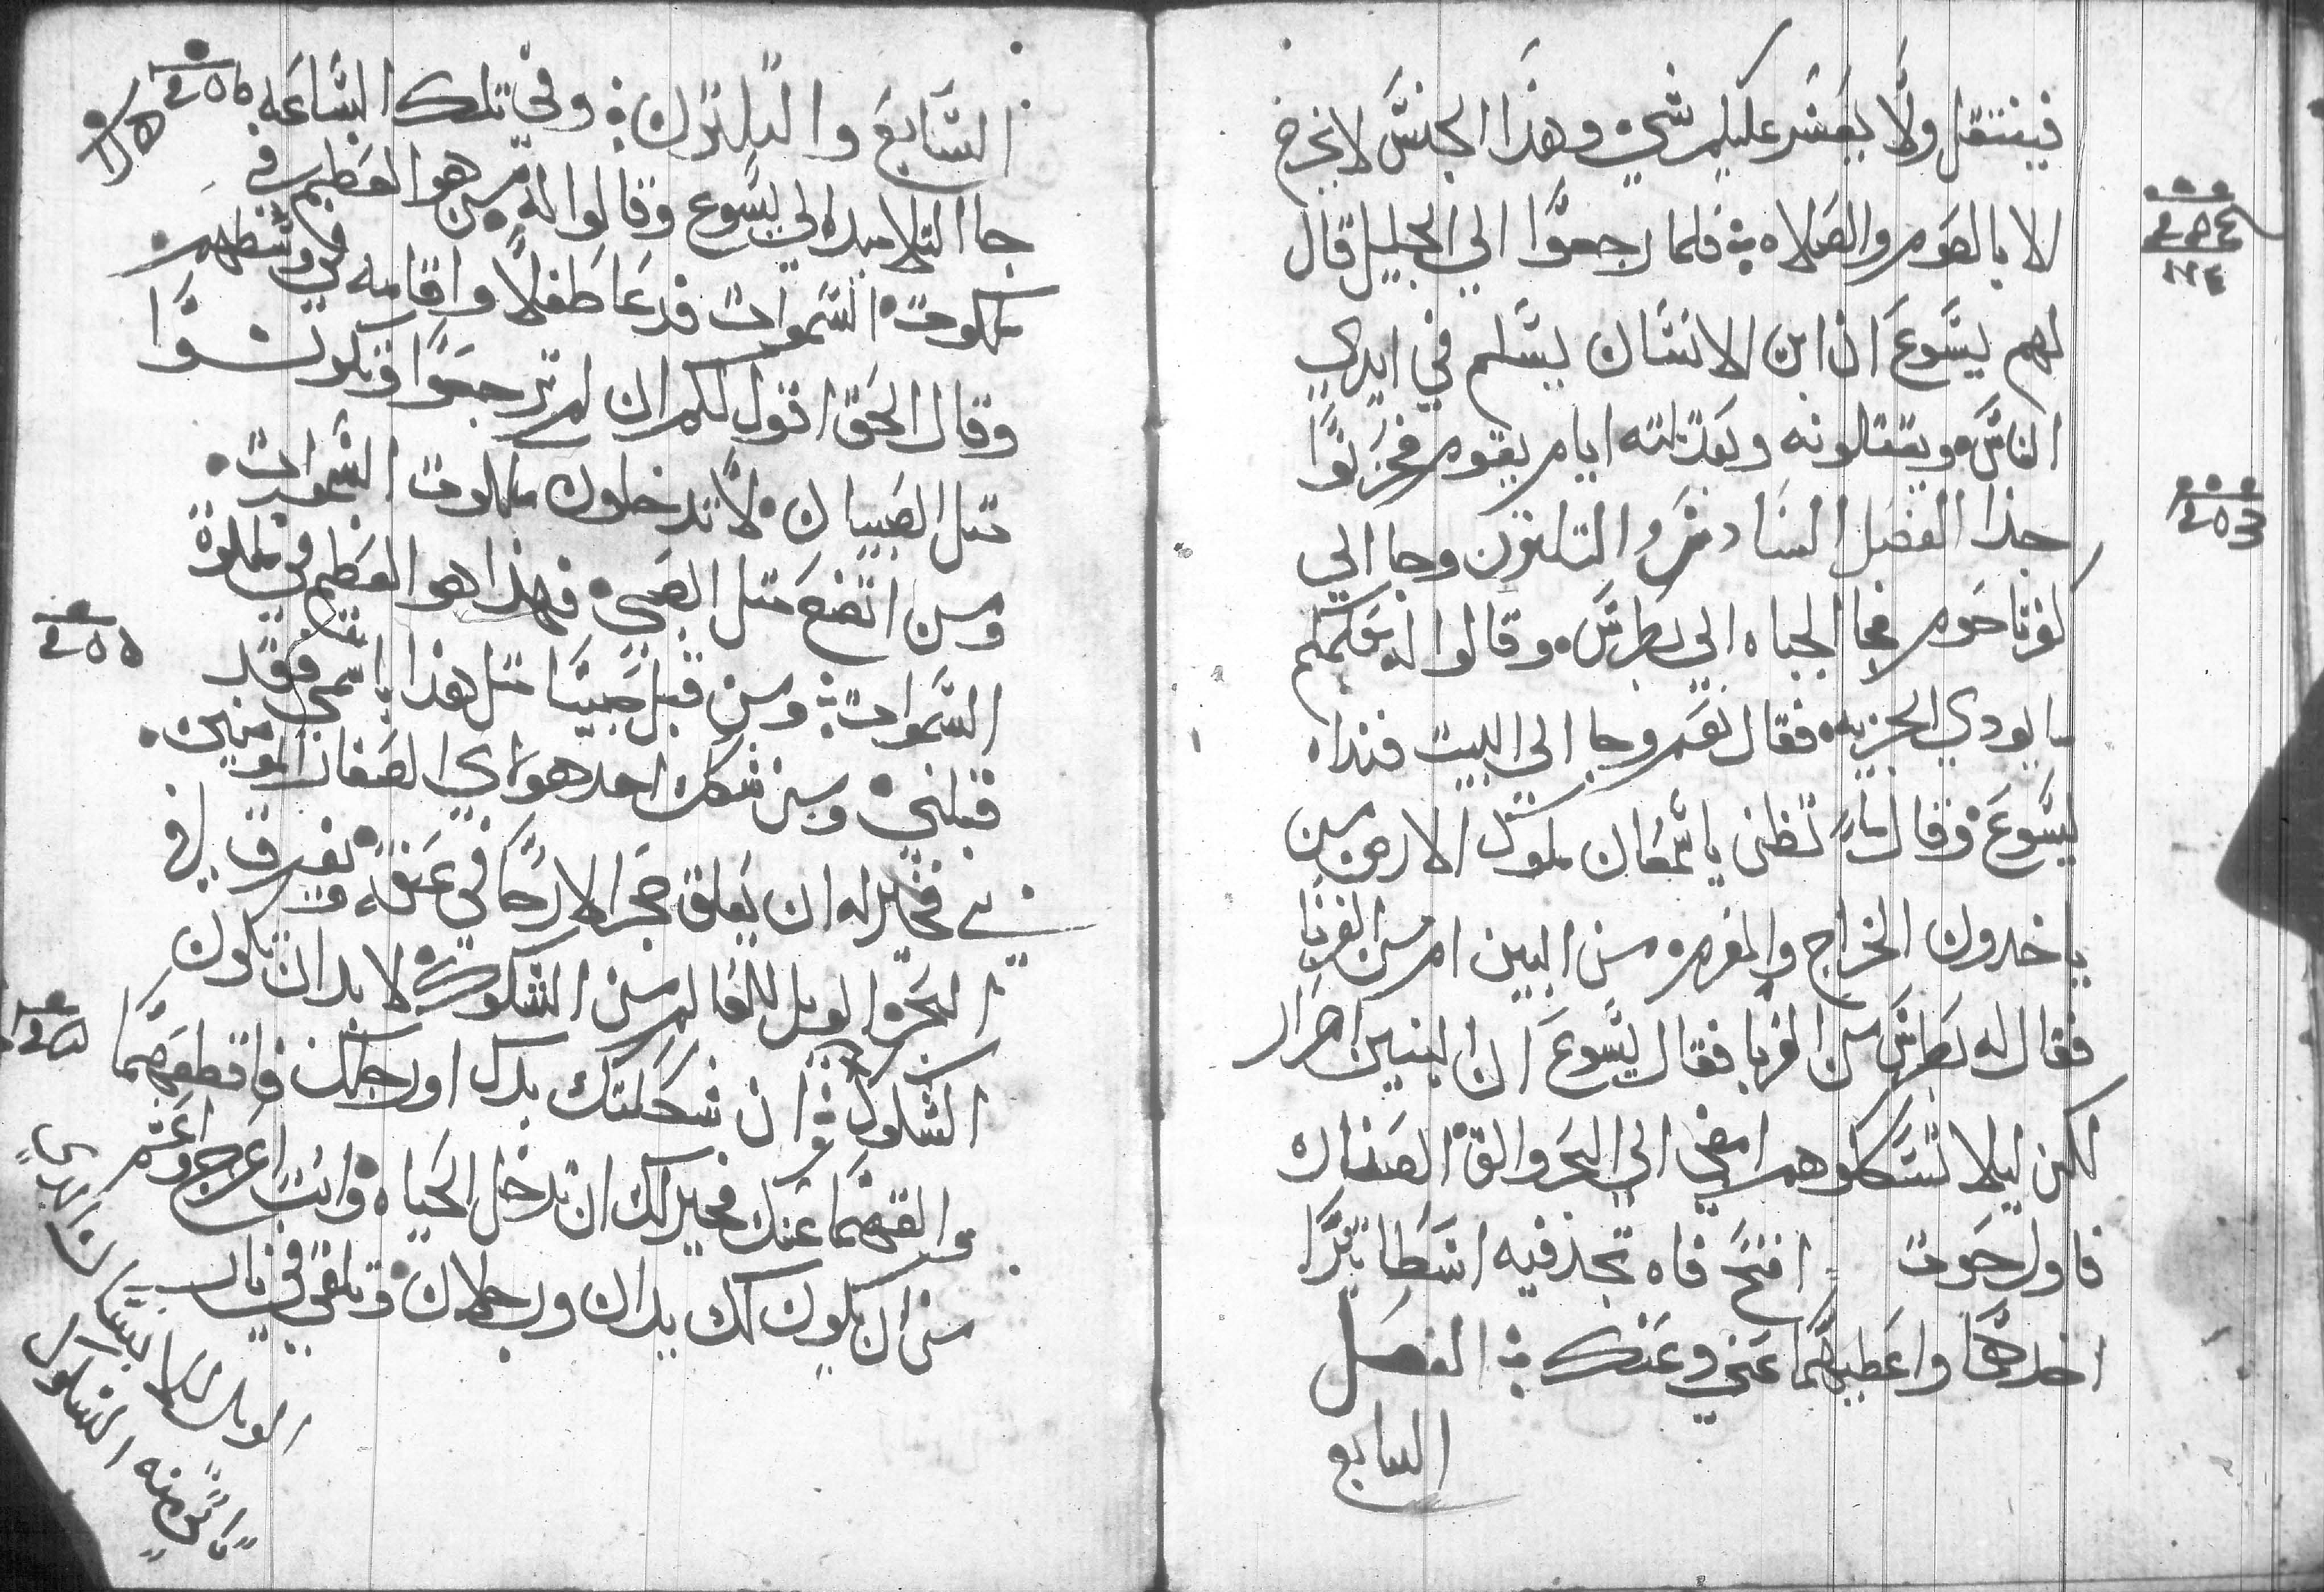 فينتقل ولا يعسر عليكم شي وهذا الجنس لا يخرج
الا بالصوم والصلاه فلما رجعوا الي الجليل قال
لهم يسوع ان ابن الانسان يسلم في ايدي
الناس ويقتلونه وبعد تلته ايام يقوم فحزنوا
جدا الفصل السادس والتلتون وجا الي
كفرناحوم فجا الجباه الي بطرس وقالوا له معلمكم
ما يودي الجزيه فقال نعم وجا الي البيت فنداه
يسوع وقال له تظن ياسمعان ملوك الارض من
ياخدون الخراج والمغرمه من البنين ام من الغربا
فقال له بطرس من الغربا فقال يسوع ان البنين احرار
لكن ليلا تشككوهم امضي الي البحر والق الصناره
فاول حوت افتح فاه تجد فيه استطاتيرا
اخدها واعطيها عني وعنك الفصل
السابع
السابع والتلتون وفي تلك الساعه
جا التلاميد الي يسوع وقالوا له من هو العظيم في
ملكوت السموات فدعا طفلا واقامه في وسطهم
وقال الحق اقول لكم ان لم ترجعوا وتكونوا
متل الصبيان لا تدخلون ملكوت السموات
ومن اتضع متل الصبي فهذا هو العظيم في ملكوت
السموات ومن قبل صبيا متل هذا باسمي فقد
قبلني ومن شكك احد هولاي الصغار المومنين
بي فخير له ان يعلق حجر الارحا في عنقه ويغرق في
البحر الويل للعالم من الشكوك لا بد ان تكون
الشكوك وان شككتك يدك او رجلك فاقطعهما
والقهما عنك فخير لك ان تدخل الحياه وانت اعرج واعسم
من ان يكون لك يدان ورجلان وتلقي في نار
الويل للانسان الدي
تاتي منه الشكوك